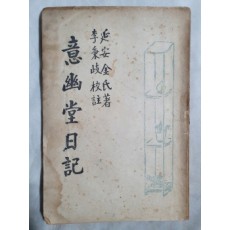 延安金氏著
李秉岐校註
意幽堂日記